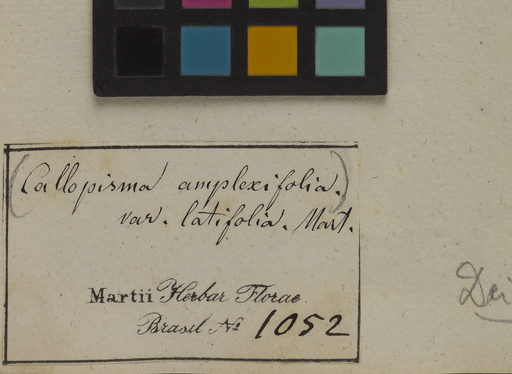 (Callopisma amplexifolia.)
var. latifolia. Mart.
Martii Herbar. Florae
Brasil No 1052